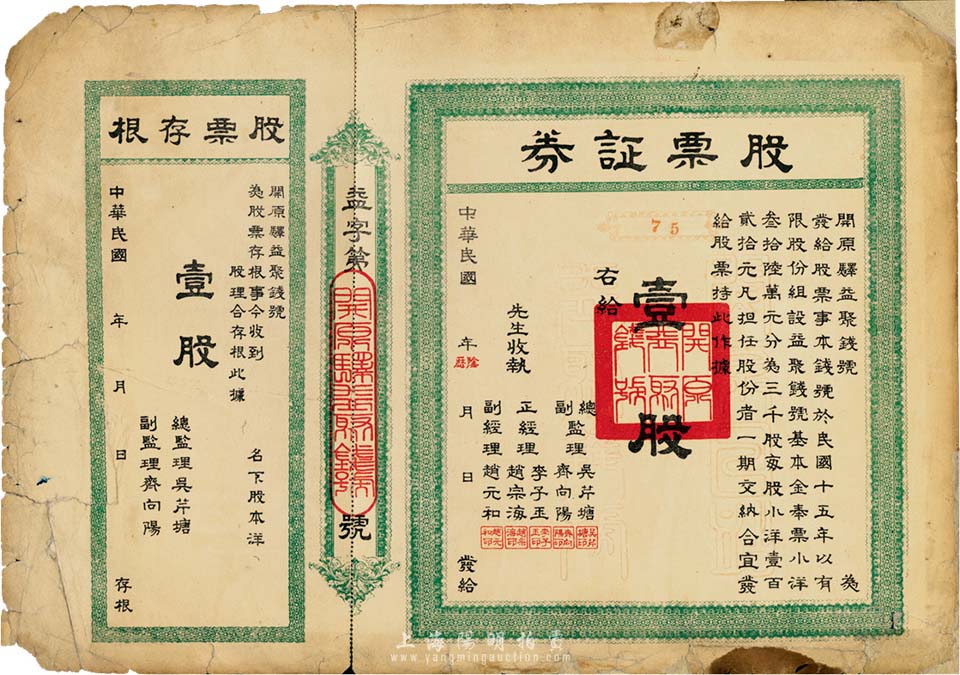 股票証券
開原驛益聚錢號　為
發給股票事本錢號於民國十五年以有
限股份組設益聚錢號基本金奉票小洋
叁拾陸萬元分為三千股每股小洋壹百
貳拾元凡担任股份者一期交納合宜發
給股票持此作據
75
壹股
右給
先生收執
總監理 吳芹塘
副監理 齊向陽
正經理 李子玉
副經理 趙宗海
趙元和
中華民國 年 月 日 發給
陰曆
益字第 號
股票存根
開原驛益聚錢號
為股票存根事今收到 名下股本洋
股理合存根此據
壹股
總監理吳芹塘
副監理齊向陽
中華民國 年 月 日 存根
上海陽明拍賣
www.yangmingauction.com